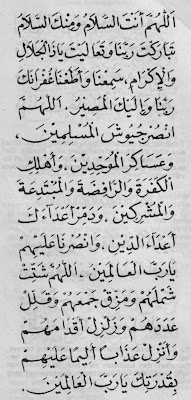 اَللّٰهُمَّ أَنْتَ السَّلَامُ وَمِنْكَ السَّلَامُ
تَبَارَكْتَ رَبَّنَا وَتَعَالَيْتَ يَاذَا الْجَلَالِ
وَالْإِكْرَامِ، سَمِعْنَا وَأَطَعْنَا غُفْرَانَكَ
رَبَّنَا وَإِلَيْكَ الْمَصِيْرُ. اَللّٰهُمَّ
انْصُرْ جُيُوْشَ الْمُسْلِمِيْنَ،
وَعَسَاكِرَ الْمُوَحِّدِيْنَ. وَأَهْلِكِ
الْكَفَرَةَ وَالرَّافِضَةَ وَالْمُبْتَدِعَةَ
وَالْمُشْرِكِيْنَ. وَدَمِّرْ أَعْدَاءَكَ
أَعْدَاءَ الدِّيْنِ. وَانْصُرْنَا عَلَيْهِمْ
يَارَبَّ الْعَالَمِيْنَ. اَللّٰهُمَّ شَتِّتْ
شَمْلَهُمْ وَمَزِّقْ جَمْعَهُمْ وَقَلِّلْ
عَدَدَهُمْ وَزَلْزِلْ أَقْدَامَهُمْ
وَأَنْزِلْ عَذَابًا أَلِيْمًا عَلَيْهِمْ
بِقُدْرَتِكَ يَارَبَّ الْعَالَمِيْنَ.